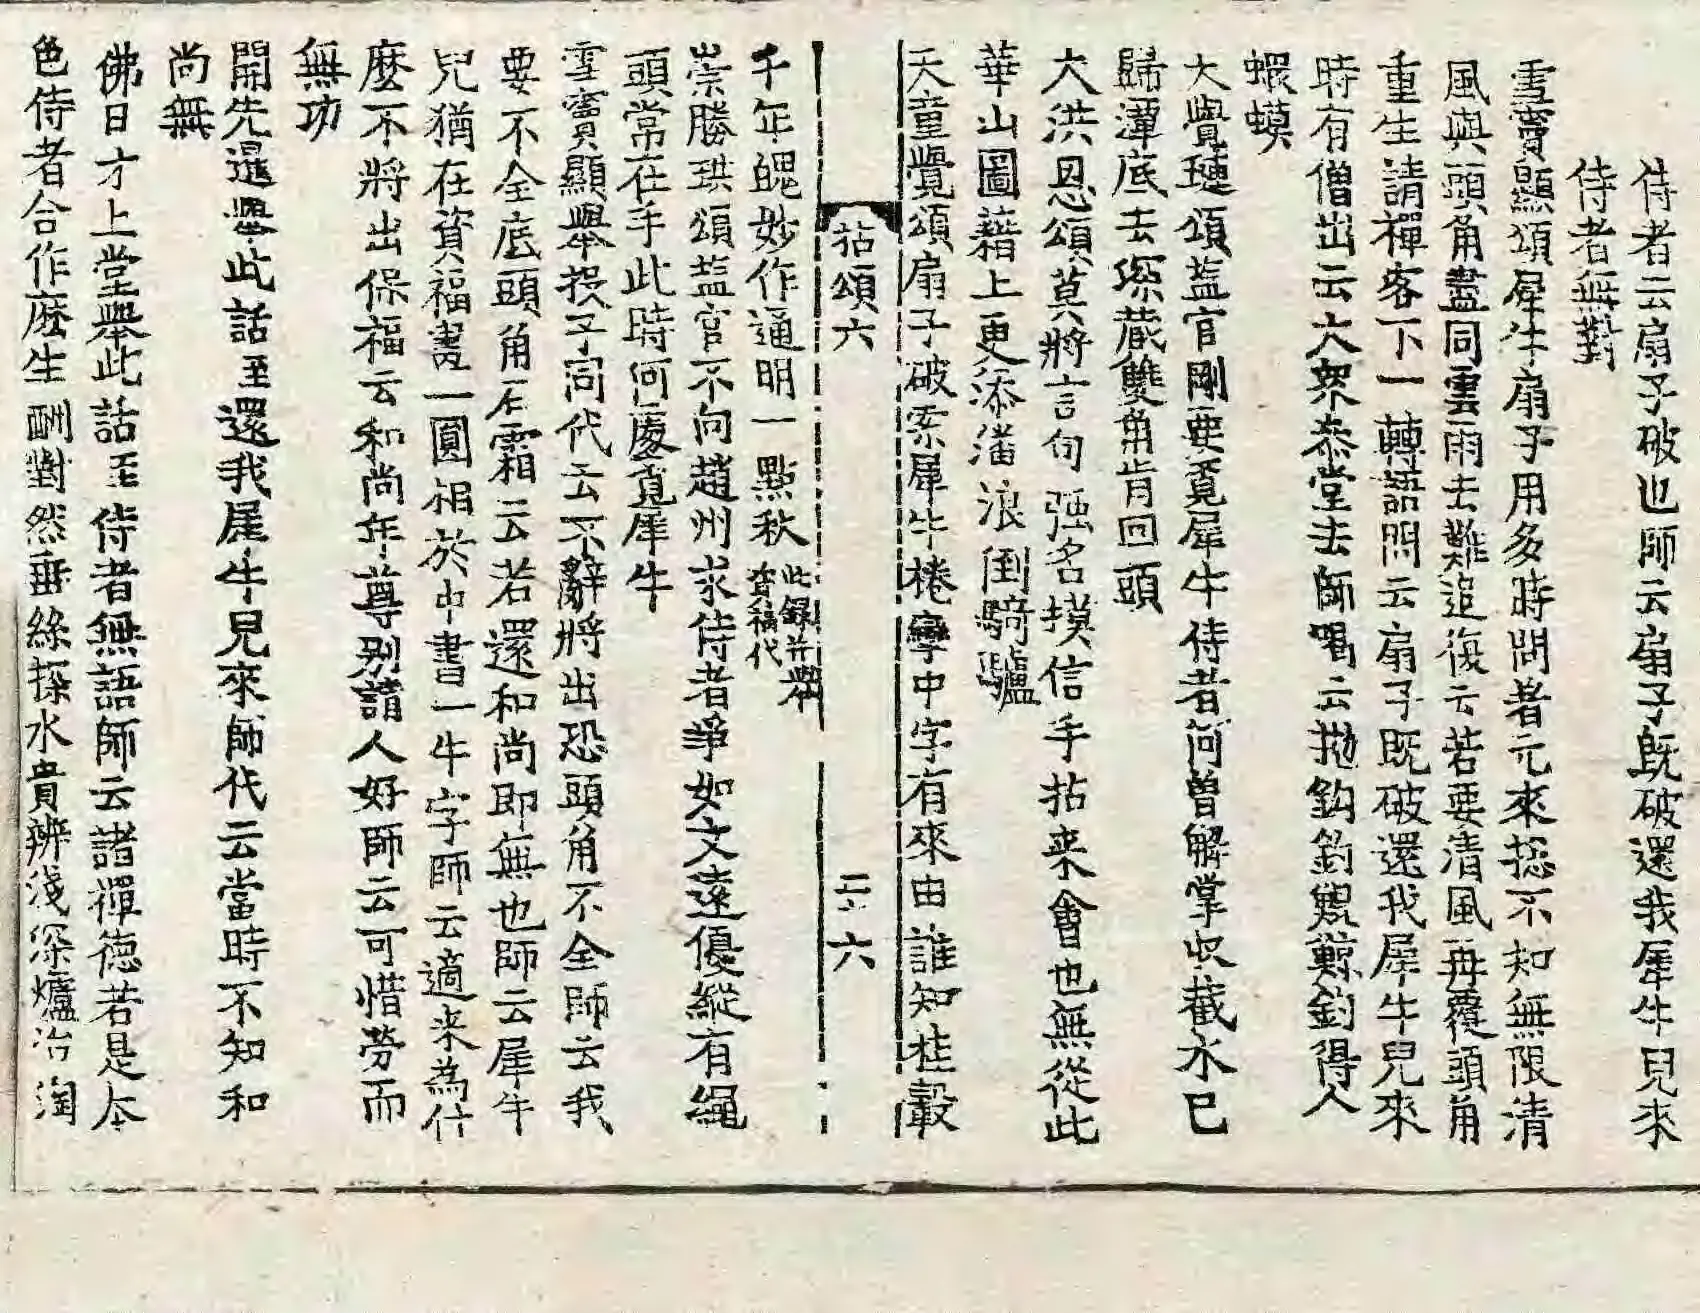 侍者云扇子破也師云扇子旣破還我犀牛兒來
侍者無對
雪竇顯頌犀牛扇子用多時問著元來揔不知無限清
風與頭角盡同雲雨去難追復云若要清風再覆頭角
重生請禪客下一轉語問云扇子既破還我犀牛兒來
時有僧出云大衆叅堂去師喝云抛鈎釣鯤鯨釣得人
蝦蟆
大覺璉頌盐官剛要覔犀牛侍者何曾解掌収截水已
歸潭底去深藏雙角肯回頭
大洪恩頌莫將言句强名摸信手拈来會也無從此
華山圖藉上更添潘浪倒騎驢
天童覺頌扇子破索犀牛棬攣中字有來由誰知桂轂
拈頌六
二六
千年魄妙作通明一點秋此録并擧資福代
崇勝珙頌盐官不向趙州求侍者爭如文遠優縱有繩
頭常在手此時何處覔犀牛
雪竇顯擧投子同代云不辭將出恐頭角不全師云我
要不全底頭角石霜云若還和尚即無也師云犀牛
兒猶在資福畫一圓相於中書一牛字師云適来為什
麽不將出保福云和尚年尊别請人好師云可惜勞而
無功
開先暹擧此話至還我犀牛兒來師代云當時不知和
尚無
佛日才上堂擧此話至侍者無語師云諸禪德若是本
色侍者合作麽生酬對然垂絲探水貴辨淺深爐冶淘